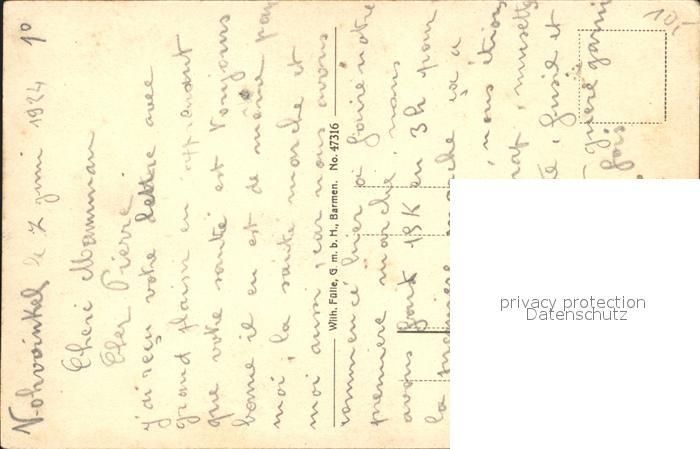 Vohwinkel le 7 juin 1924 1º
Cheri Mamman
Cher Pierre
j'ai reçu votre lettre avec
grand plaisir en apprenant
que votre santé est toujours
bonne il en est de même par
moi, la santé marche et
moi aussi, car nous avons
commencé hier a faire notre
première marche, nous
avons fait 15 K en 3h pour
la première marche ça a
nous étions
musette
fusil et
garni
fois
Wilh. Fülle, G. m. b. H., Barmen. No. 47316
10,-
privacy protection
Datenschutz